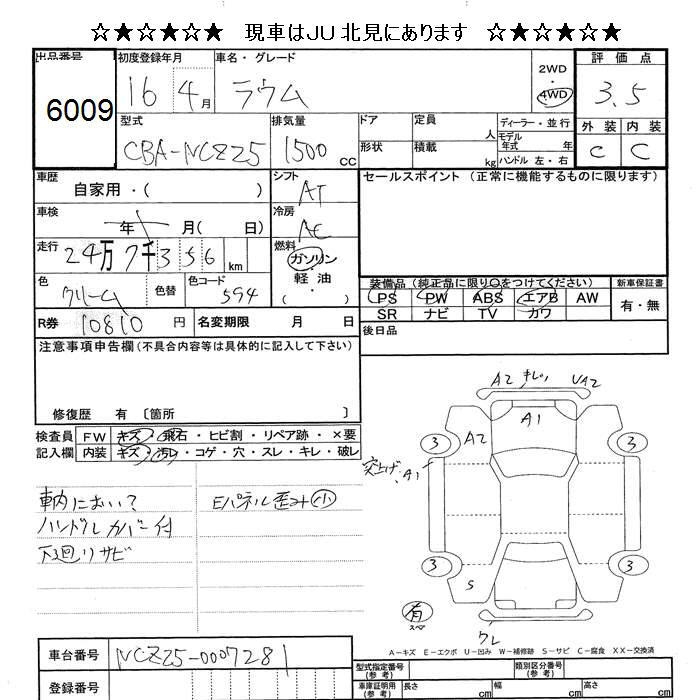 ☆★☆★☆★ 現車はJU北見にあります ☆★☆★☆★
出品番号 初度登録年月 車名・グレード 2WD・4WD 評価点
6009 16 4月 ラウム 3.5
型式 排気量 ドア 定員 人 ディーラー・並行 外装 内装
CBA-NCZ25 1500 CC 形状 積載 kg モデル年式 年 ハンドル 左・右 C C
車歴 自家用・( ) シフト AT セールスポイント (正常に機能するものに限ります)
車検 年 月( 日) 冷房 AC
走行 24万7千356 km 燃料 ガソリン・軽油・( )
色 クリーム 色替 色コード 594 装備品 (純正品に限り○をつけてください) 新車保証書
PS PW ABS エアB AW 有・無
SR ナビ TV カワ
R券 10810 円 名変期限 月 日 後日品
注意事項申告欄 (不具合内容等は具体的に記入して下さい)
修復歴 有 〔箇所 〕
検査員 FW キズ・飛石・ヒビ割・リペア跡・×要
記入欄 内装 キズ・汚レ・コゲ・穴・スレ・キレ・破レ
車内におい? Eパネル歪み小
ハンドルカバー付
下廻りサビ
A2 キレ UA2
A1
3 A2 3
突上げ・A1
3 3
S
有
スペア
クレ
A-キズ E-エクボ U-凹み W-補修跡 S-サビ C-腐食 XX-交換済
車台番号 NCZ25-0007281
型式指定番号 (参考) 類別区分番号 (参考)
登録番号 車庫証明用 (参考) 長さ cm 幅 cm 高さ cm